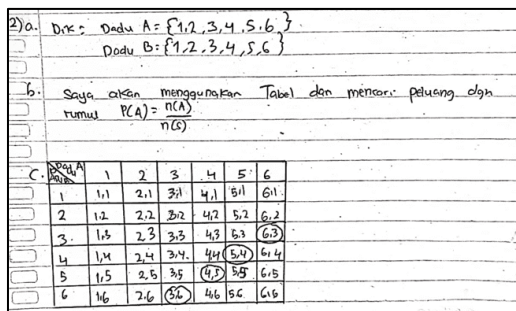 2) a. Dik : Dadu A = {1,2,3,4,5,6}
Dadu B = {1,2,3,4,5,6}
b. Saya akan menggunakan Tabel dan mencari peluang dgn
rumus P(A) = n(A)/n(S)
c. Dadu A 1 2 3 4 5 6
1 1,1 2,1 3,1 4,1 5,1 6,1
2 1,2 2,2 3,2 4,2 5,2 6,2
3. 1,3 2,3 3,3 4,3 5,3 6,3
4 1,4 2,4 3,4. 4,4 5,4 6,4
5 1,5 2,5 3,5 4,5 5,5 6,5
6 1,6 2,6 3,6 4,6 5,6 6,6